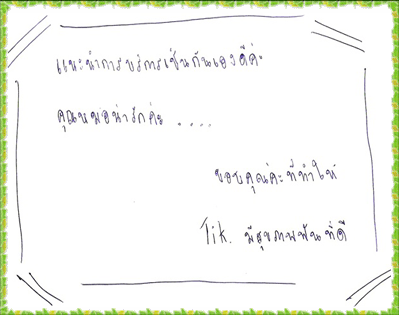 แนะนำการบริการเช่นกันเองดีค่ะ
คุณหมอน่ารักค่ะ ....
ขอบคุณค่ะที่ทำให้
Tik. มีสุขภาพฟันที่ดี